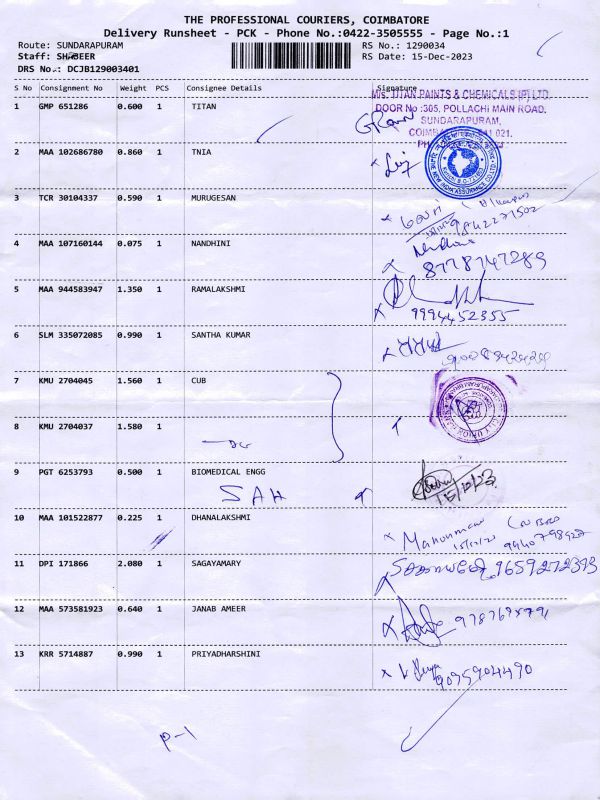 THE PROFESSIONAL COURIERS, COIMBATORE
Delivery Runsheet - PCK - Phone No.:0422-3505555 - Page No.:1
Route: SUNDARAPURAM RS No.: 1290034
Staff: SHABEER RS Date: 15-Dec-2023
DRS No.: DCJB129003401
S No Consignment No Weight PCS Consignee Details Signature
M/s. TITAN PAINTS & CHEMICALS (P) LTD.
1 GMP 651286 0.600 1 TITAN DOOR No :305, POLLACHI MAIN ROAD,
SUNDARAPURAM,
2 MAA 102686780 0.860 1 TNIA
3 TCR 30104337 0.590 1 MURUGESAN
9842271502
4 MAA 107160144 0.075 1 NANDHINI
8778747289
5 MAA 944583947 1.350 1 RAMALAKSHMI
9994452355
6 SLM 335072085 0.990 1 SANTHA KUMAR
7 KMU 2704045 1.560 1 CUB
8 KMU 2704037 1.580 1
9 PGT 6253793 0.500 1 BIOMEDICAL ENGG
SAH 15/12/23
10 MAA 101522877 0.225 1 DHANALAKSHMI
11 DPI 171866 2.080 1 SAGAYAMARY
12 MAA 573581923 0.640 1 JANAB AMEER
13 KRR 5714887 0.990 1 PRIYADHARSHINI
9095904490
P-1